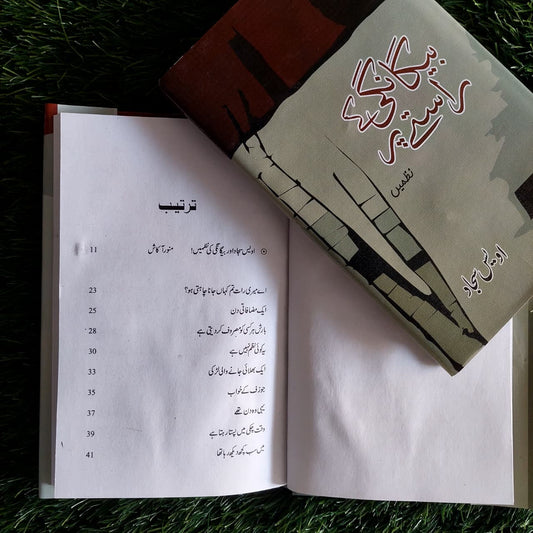 بیگانگی کے
راستے پر
نظمیں
اویس سجاد
ترتیب
اویس سجاد اور بیگانگی کی نظمیں! منور آکاش 11
اے میری رات تم کہاں جانا چاہتی ہو؟ 23
ایک مضافاتی دن 25
بارش ہر کسی کو مصروف کر دیتی ہے 28
یہ کوئی نظم نہیں ہے 30
ایک بھلائی جانے والی لڑکی 33
جوزف کے خواب 35
یہی وہ دن تھے 37
وقت چکی میں پستا رہتا ہے 39
میں سب کچھ دیکھ رہا تھا 41